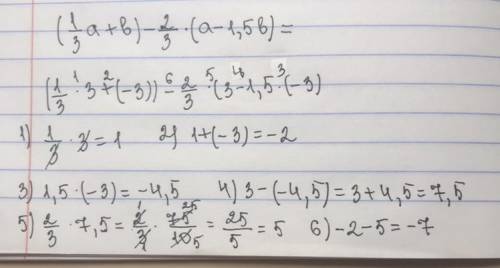 (1/3 a + в) − 2/3 · (a − 1,5в) =
(1/3 ·¹ 3 +² (−3)) −⁶ 2/3 ·⁵ (3 −⁴ 1,5 ·³ (−3)
1) 1/3 · 3 = 1 2) 1+(−3) = −2
3) 1,5 · (−3) = −4,5 4) 3 − (−4,5) = 3 + 4,5 = 7,5
5) 2/3 · 7,5 = 2¹/3₁ · 75²⁵/10₅ = 25/5 = 5 6) −2−5 = −7